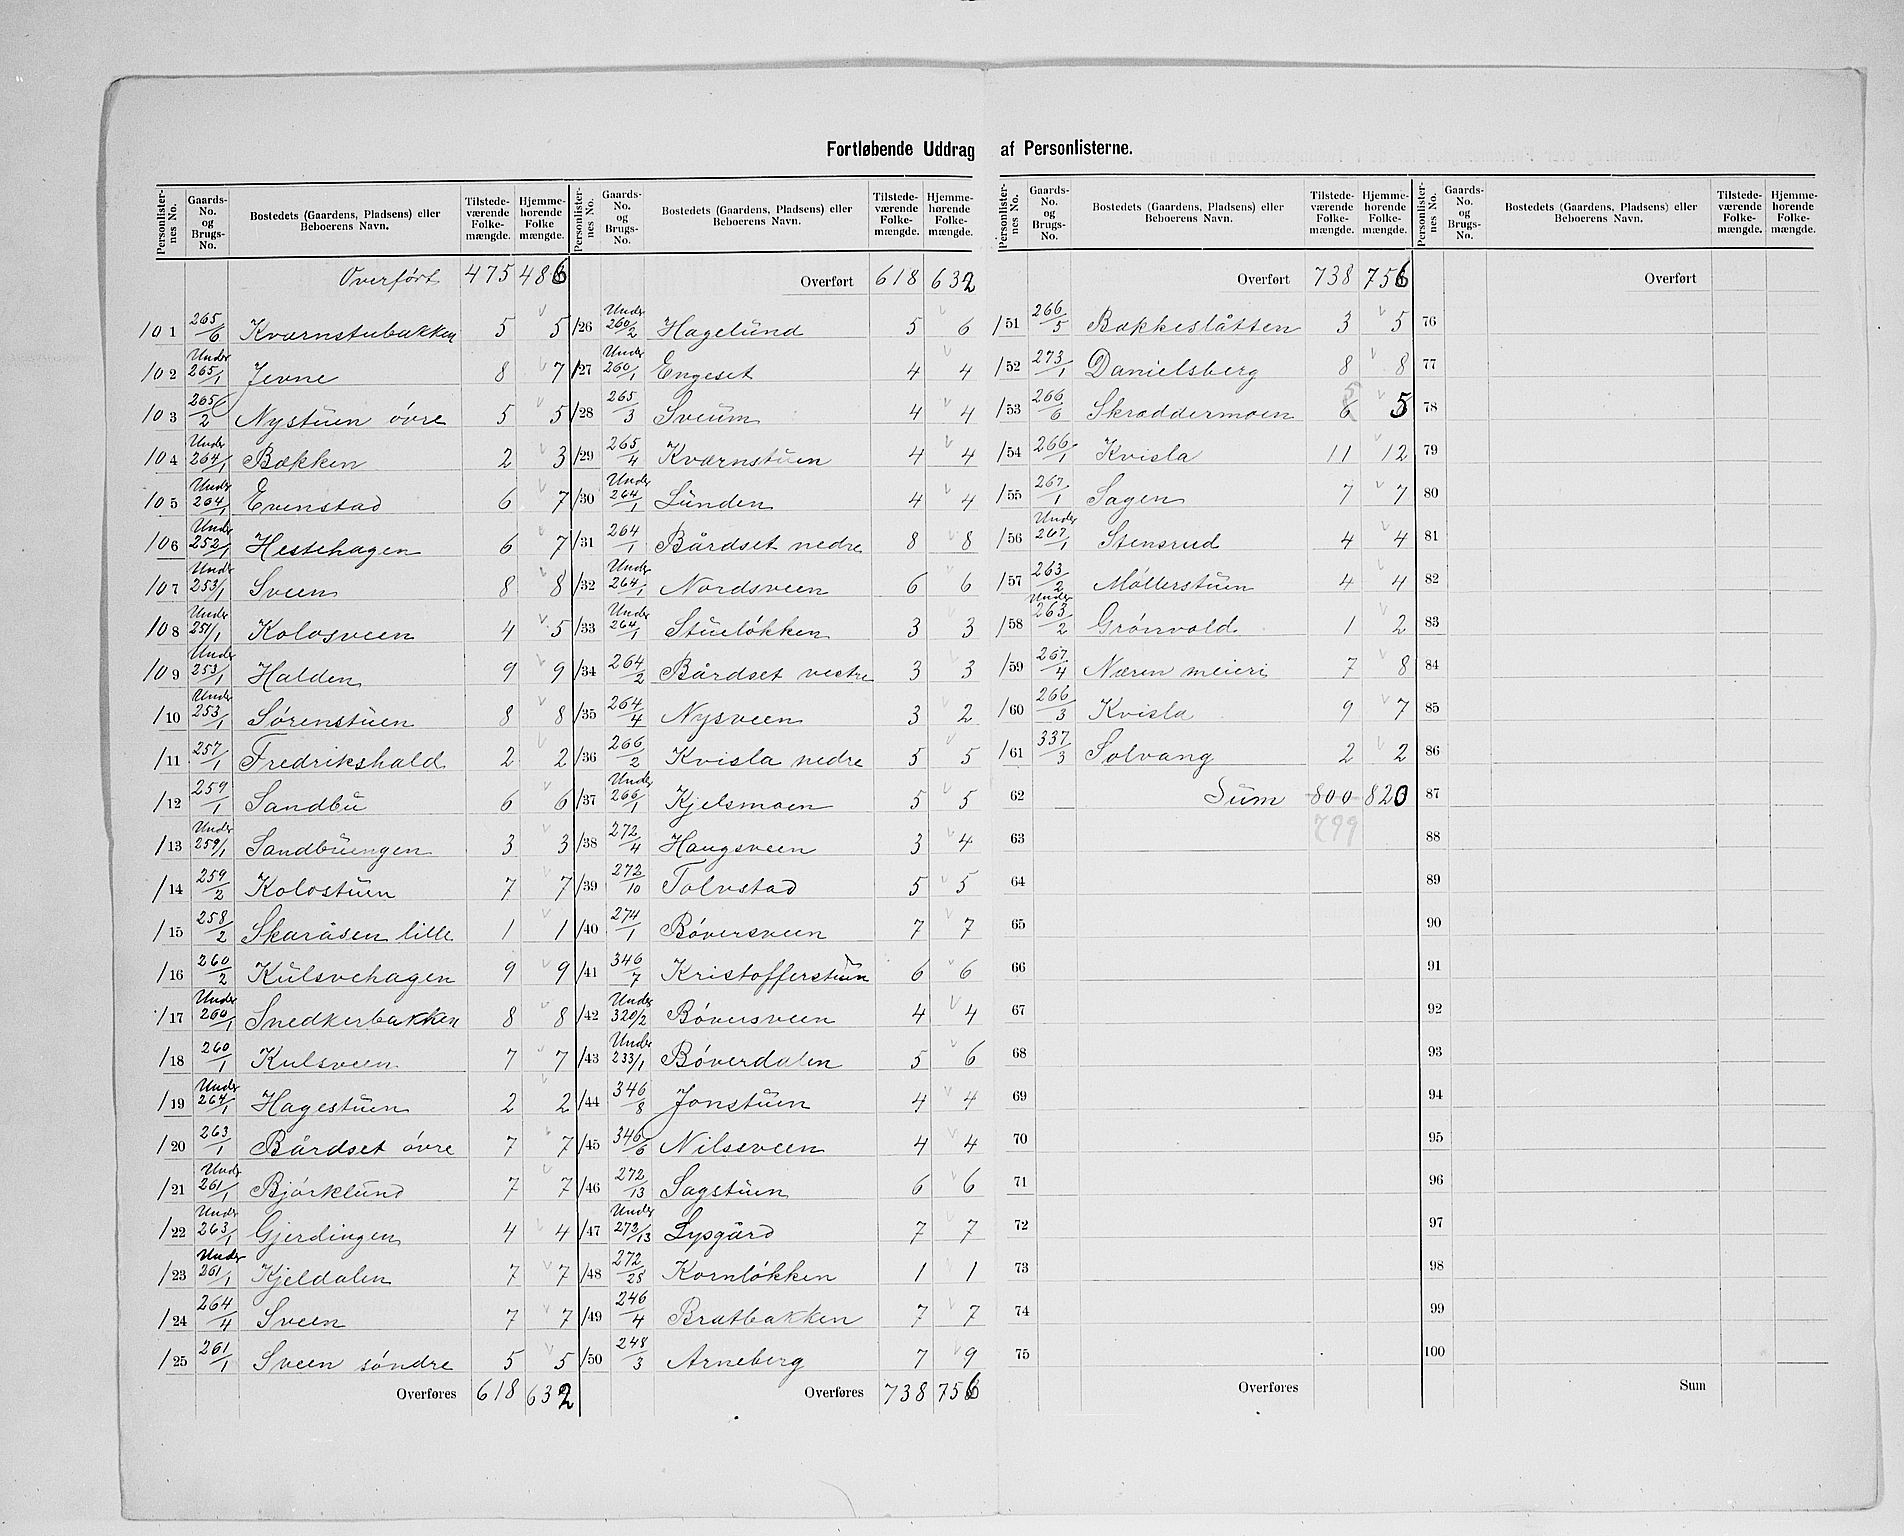 Fortløbende Uddrag af Personlisterne.
Personlister-nes No. | Gaards-No. og Brugs-No. | Bostedets (Gaardens, Pladsens) eller Beboerens Navn. | Tilstede-værende Folke-mængde. | Hjemme-hørende Folke mængde.
Overført 475 486
101 265/6 Kværnstubakken 5 5
102 Under 265/1 Jevne 8 7
103 265/2 Nystuen øvre 5 5
104 Under 264/1 Bækken 2 3
105 Under 264/1 Evenstad 6 7
106 Under 252/1 Hestehagen 6 7
107 Under 253/1 Sveen 8 8
108 Under 251/1 Kolosveen 4 5
109 Under 253/1 Halden 9 9
/10 Under 253/1 Sørenstuen 8 8
/11 257/1 Fredrikshald 2 2
/12 259/1 Sandbu 6 6
/13 Under 259/1 Sandbuengen 3 3
/14 259/2 Kolostuen 7 7
/15 258/2 Skaråsen lille 1 1
/16 260/2 Kulsvehagen 9 9
/17 Under 260/1 Snedkerbakken 8 8
/18 260/1 Kulsveen 7 7
/19 Under 264/1 Hagestuen 2 2
/20 263/1 Bårdset øvre 7 7
/21 Und. 261/1 Bjørklund 7 7
/22 Under 263/1 Gjerdingen 4 4
/23 Under 261/1 Kjeldalen 7 7
/24 264/4 Sveen 7 7
/25 261/1 Sveen søndre 5 5
Overføres 618 632
Personlister-nes No. | Gaards-No. og Brugs-No. | Bostedets (Gaardens, Pladsens) eller Beboerens Navn. | Tilstede-værende Folke-mængde. | Hjemme-hørende Folke-mængde.
Overført 618 632
/26 Under 260/2 Hagelund 5 6
/27 Under 260/1 Engeset 4 4
/28 265/3 Sveum 4 4
/29 265/4 Kværnstuen 4 4
/30 Under 264/1 Lunden 4 4
/31 264/1 Bårdset nedre 8 8
/32 Under 264/1 Nordsveen 6 6
/33 Under 264/1 Stueløkken 3 3
/34 264/2 Bårdset vestre 3 3
/35 264/4 Nysveen 3 2
/36 266/2 Kvisla nedre 5 5
/37 Under 266/1 Kjelsmoen 5 5
/38 272/4 Haugsveen 3 4
/39 272/10 Tolvstad 5 5
/40 274/1 Bøversveen 7 7
/41 346/7 Kristofferstuen 6 6
/42 Under 320/2 Bøversveen 4 4
/43 Under 233/1 Bøverdalen 5 6
/44 346/8 Jonstuen 4 4
/45 346/6 Nilsveen 4 4
/46 272/13 Sagstuen 6 6
/47 Under 272/13 Lysgård 7 7
/48 272/28 Kornløkken 1 1
/49 246/4 Bratbakken 7 7
/50 248/3 Arneberg 7 9
Overføres 738 756
Personlister-nes No. | Gaards-No. og Brugs-No. | Bostedets (Gaardens, Pladsens) eller Beboerens Navn. | Tilstede-værende Folke-mængde. | Hjemme-hørende Folke-mængde.
Overført 738 756
/51 266/5 Bækkeslåtten 3 5
/52 273/1 Danielsberg 8 8
/53 266/6 Skræddermoen 6 5 5
/54 266/1 Kvisla 11 12
/55 267/1 Sagen 7 7
/56 Under 267/1 Stensrud 4 4
/57 263/2 Møllerstuen 4 4
/58 Under 263/2 Grønvold 1 2
/59 267/4 Næren meieri 7 8
/60 266/3 Kvisla 9 7
/61 337/3 Solvang 2 2
62 Sum 800 820
799
63
64
65
66
67
68
69
70
71
72
73
74
75
Overføres
Personlister-nes No. | Gaards-No. og Brugs-No. | Bostedets (Gaardens, Pladsens) eller Beboerens Navn. | Tilstede-værende Folke-mængde. | Hjemme-hørende Folke-mængde.
Overført
76
77
78
79
80
81
82
83
84
85
86
87
88
89
90
91
92
93
94
95
96
97
98
99
100
Sum